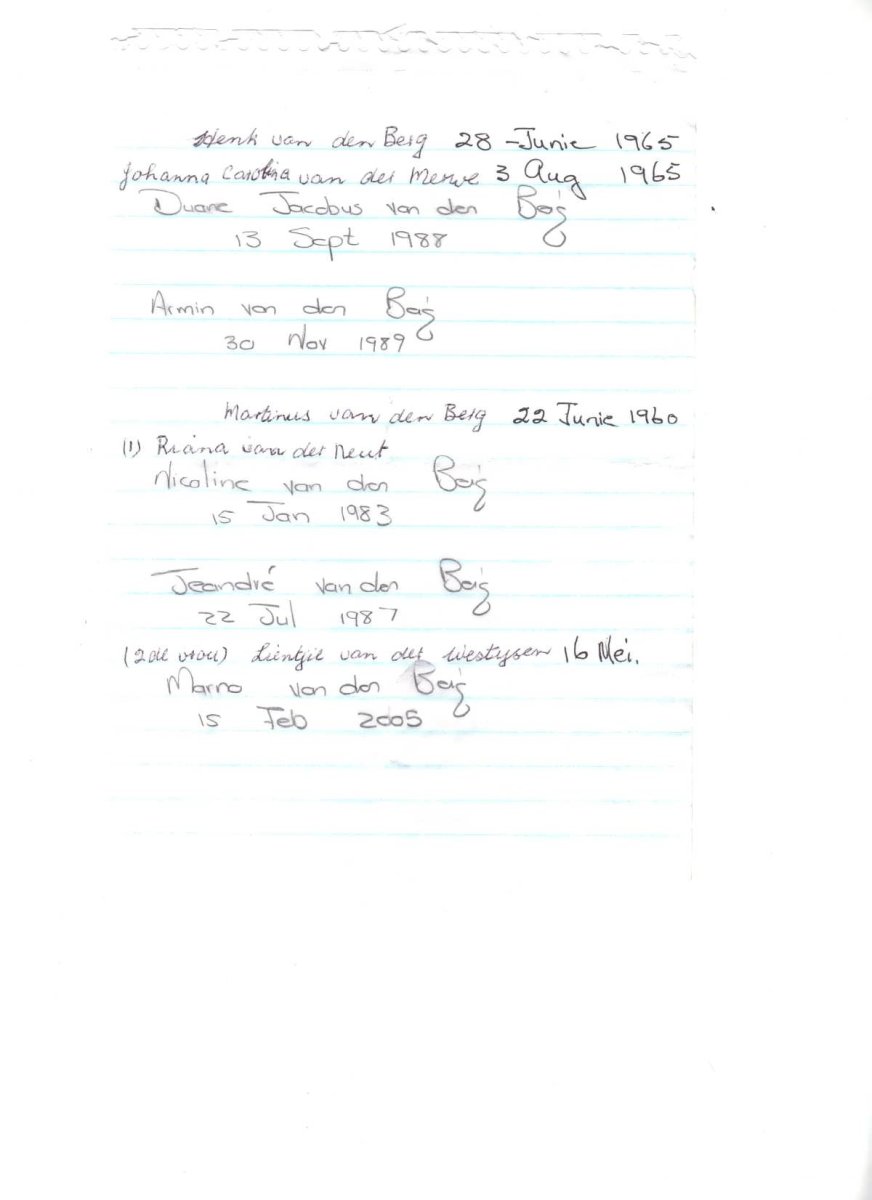 Henk van den Berg 28 - Junie 1965
Johanna Carolina van der Merwe 3 Aug 1965
Duane Jacobus van den Berg
13 Sept 1988
Armin van den Berg
30 Nov 1989
Martinus van den Berg 22 Junie 1960
(1) Riana van der Neut
Nicoline van den Berg
15 Jan 1983
Jeandré van den Berg
22 Jul 1987
(2de vrou) Lientjie van der Westysen 16 Mei.
Marno van den Berg
15 Feb 2005